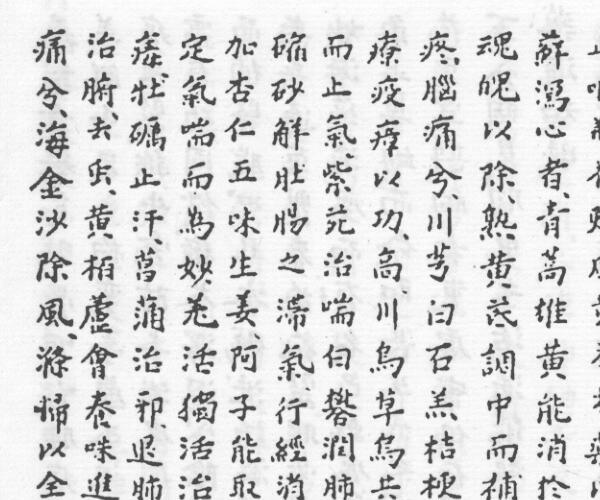 蘇瀉心者、青蒿雄黄能消於
魂魄以除、熱黄芪調中而補
疼、腦痛兮、川芎白石羔、桔梗
療疫瘴以功、高川烏草烏共
而止氣、紫苑治喘白礬潤肺
硇砂解肚腸之滯氣行經消
加杏仁五味生姜阿子能取
定氣喘而為妙、羌活獨活治
痿牡礪止汗、菖蒲治邪、退肺
治腑、去虫、黄栢蘆會養味進
痛兮、海金沙除風、滌帰以全